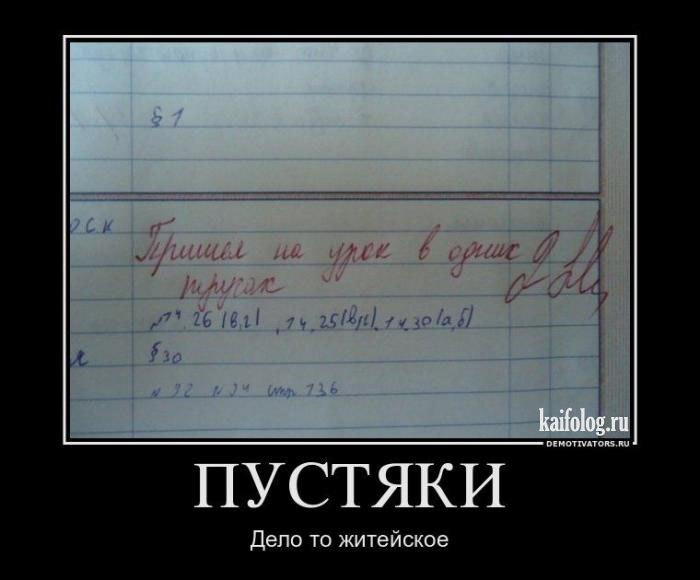 § 1
оск
Пришел на урок в одних
трусах
№14.26 (в,г), 14.25(в,г), 14.30(а,б)
§ 30
№ 92 № 94 стр 136
kaifolog.ru
DEMOTIVATORS.RU
ПУСТЯКИ
Дело то житейское